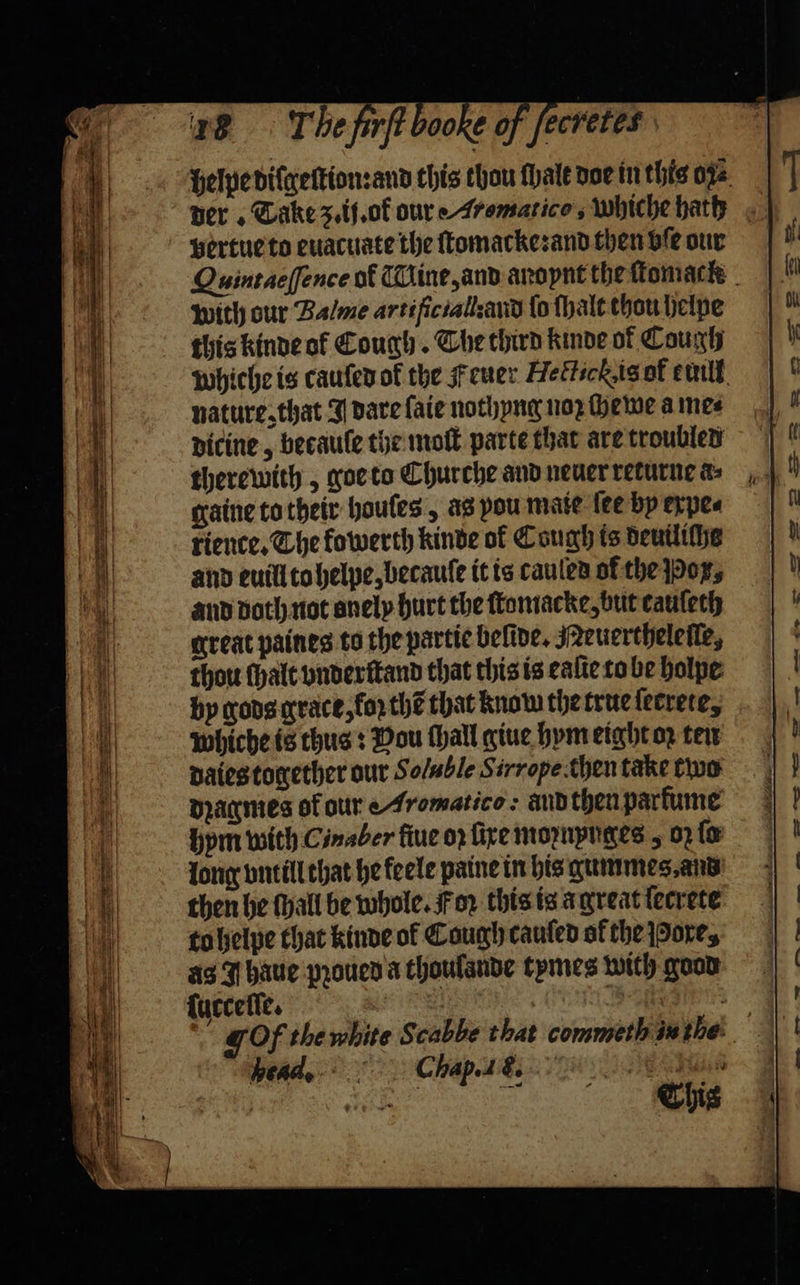 18 The first booke of secretes
helpe disgestion:and this thou shalt doe in this or-
der . Take ʒ.ij.of our Aromatico, whiche hath
vertue to euacuate the stomacke:and then vse our
Quintaessence of Wine,and anoynt the stomack
with our Balme artificiall:and so shalt thou helpe
this kinde of Cough . The third kinde of Cough
whiche is caused of the Feuer Hectick,is of euill
nature,that I dare saie nothyng nor shewe a me-
dicine , because the most parte that are troubled
therewith , goe to Churche and neuer returne a-
gaine to their houses , as you maie see by expe-
rience. The fowerth kinde of Cough is deuilishe
and euill to helpe,because it is caused of the Pox,
and doth not onely hurt the stomacke,but causeth
great paines to the partie beside. Neuerthelesse,
thou shalt vnderstand that this is easie to be holpe
by gods grace,for thē that know the true secrete,
whiche is thus : You shall giue hym eight or ten
daies together our Soluble Sirrope:then take two
dragmes of our Aromatico : and then parfume
hym with Cinaber fiue or sixe mornynges , or so
long vntill that he feele paine in his gummes,and
then he shall be whole. For this is a great secrete
to helpe that kinde of Cough caused of the Poxe,
as I haue proued a thousande tymes with good
successe.
¶ Of the white Scabbe that commeth in the
head. Chap.18.
This